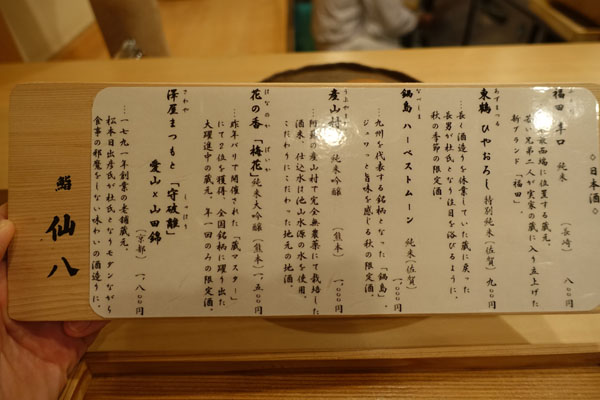 ◇日本酒◇
福田 辛口 純米 (長崎) 八〇〇円
最西端に位置する蔵元。
若い兄弟二人が実家の蔵に入り立上げた
新ブランド「福田」
あずまつる
東鶴 ひやおろし 特別純米(佐賀) 九〇〇円
…長く酒造りを休業していた蔵に戻った
長男が杜氏となり注目を浴びるように。
秋の季節の限定酒。
なべしま
鍋島 ハーベストムーン 純米(佐賀) 一、〇〇〇円
…九州を代表する銘柄となった「鍋島」。
ジュワっと旨味を感じる秋の限定酒。
うぶやまむら
産山村 純米吟醸 (熊本) 一、〇〇〇円
…阿蘇の産山村で完全無農薬にて栽培した
酒米、仕込水は池山水源の水を使用。
こだわりにこだわった地元の地酒。
はなのか ばいか
花の香「梅花」純米大吟醸(熊本)一、五〇〇円
…昨年パリで開催された「蔵マスター」
にて2位を獲得。全国銘柄に躍り出た
大躍進中の蔵元。年一回のみの限定酒。
さわや しゅはり
澤屋まつもと「守破離」
愛山×山田錦 (京都) 一、八〇〇円
…一七九一年創業の老舗蔵元。
松本日出彦氏が杜氏となりモダンながら
食事の邪魔をしない味わいの酒造りに。
鮨 仙八